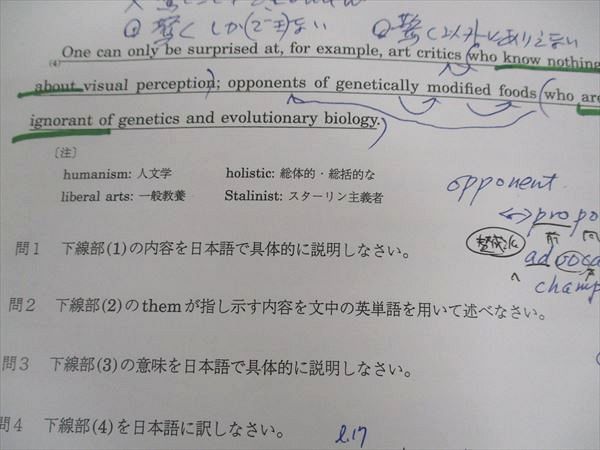 (4)One can only be surprised at, for example, art critics (who know nothing
about visual perception); opponents of genetically modified foods (who are
ignorant of genetics and evolutionary biology.)
〔注〕
humanism: 人文学 holistic: 総体的・総括的な
liberal arts: 一般教養 Stalinist: スターリン主義者
opponent
問1 下線部(1)の内容を日本語で具体的に説明しなさい。
問2 下線部(2)のthemが指し示す内容を文中の英単語を用いて述べなさい。
問3 下線部(3)の意味を日本語で具体的に説明しなさい。
問4 下線部(4)を日本語に訳しなさい。
l.17